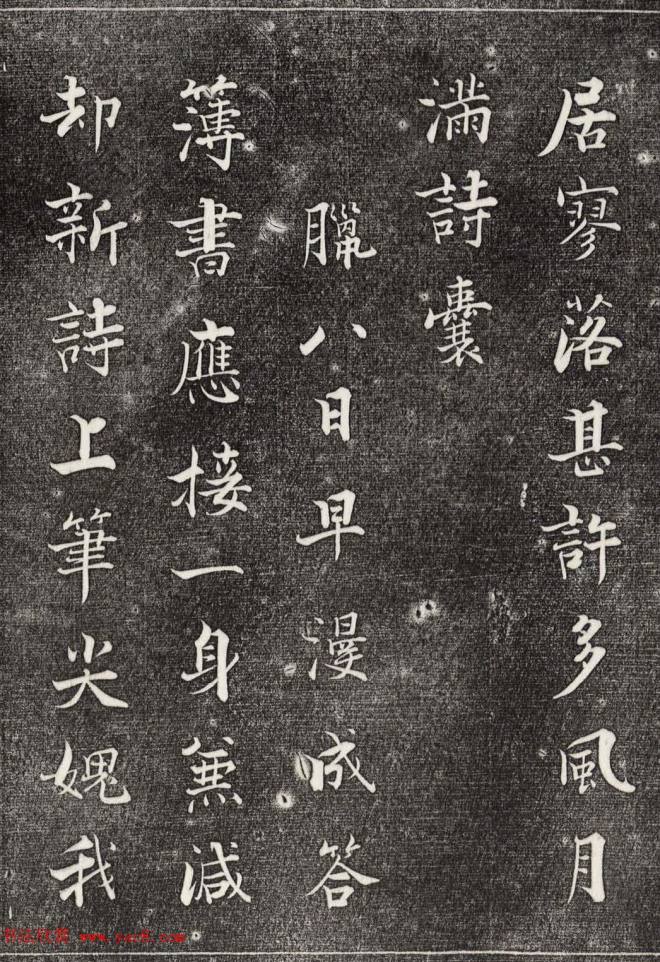 居寥落甚許多風月
滿詩囊
臘八日早漫成答
簿書應接一身兼減
却新詩上筆尖媿我
书法欣赏 www.yac8.com